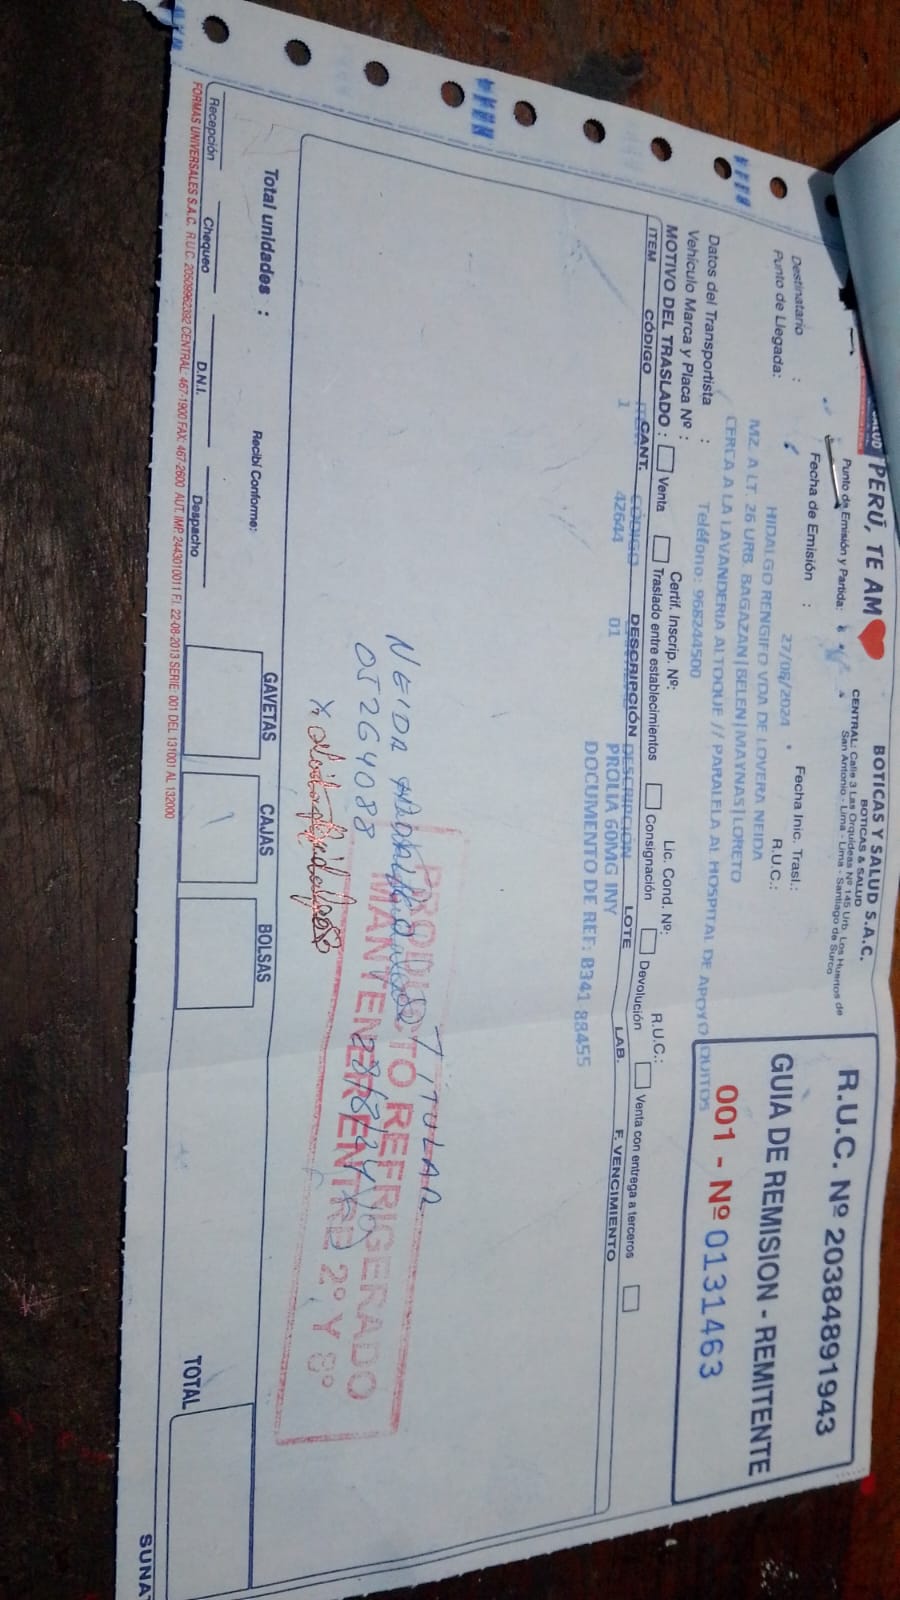 SALUD PERÚ, TE AM
BOTICAS Y SALUD S.A.C.
BOTICAS & SALUD
CENTRAL: Calle 3 Las Orquídeas Nº 145 Urb. Los Huertos de
San Antonio - Lima - Lima - Santiago de Surco
R.U.C. Nº 20384891943
GUIA DE REMISION - REMITENTE
001 - Nº 0131463
Punto de Emisión y Partida:
Fecha de Emisión : 27/06/2024
Fecha Inic. Trasl.:
Destinatario : HIDALGO RENGIFO VDA DE LOVERA NEIDA
R.U.C.:
Punto de Llegada: MZ. A LT. 26 URB. BAGAZAN|BELEN|MAYNAS|LORETO
CERCA A LA LAVANDERIA ALTOQUE // PARALELA AL HOSPITAL DE APOYO IQUITOS
Datos del Transportista : Teléfono: 968244500
R.U.C.:
Vehículo Marca y Placa Nº :
Certif. Inscrip. Nº:
Lic. Cond. Nº:
MOTIVO DEL TRASLADO : Venta Traslado entre establecimientos Consignación Devolución Venta con entrega a terceros
ITEM CÓDIGO CANT. DESCRIPCIÓN LOTE LAB. F. VENCIMIENTO
CÓDIGO DESCRIPCIÓN
1 42644 01 PROLIA 60MG INY
DOCUMENTO DE REF: B341-88455
NEIDA TITULAR
05264088
PRODUCTO REFRIGERADO
MANTENER ENTRE 2º Y 8º
Total unidades :
Recibí Conforme:
GAVETAS CAJAS BOLSAS
1
TOTAL
Recepción Chequeo D.N.I. Despacho
FORMAS UNIVERSALES S.A.C. R.U.C. 20509962392 CENTRAL: 467-1900 FAX: 467-2600 AUT. IMP. 2443010011 F.I. 22-08-2013 SERIE: 001 DEL 131001 AL 132000
SUNAT